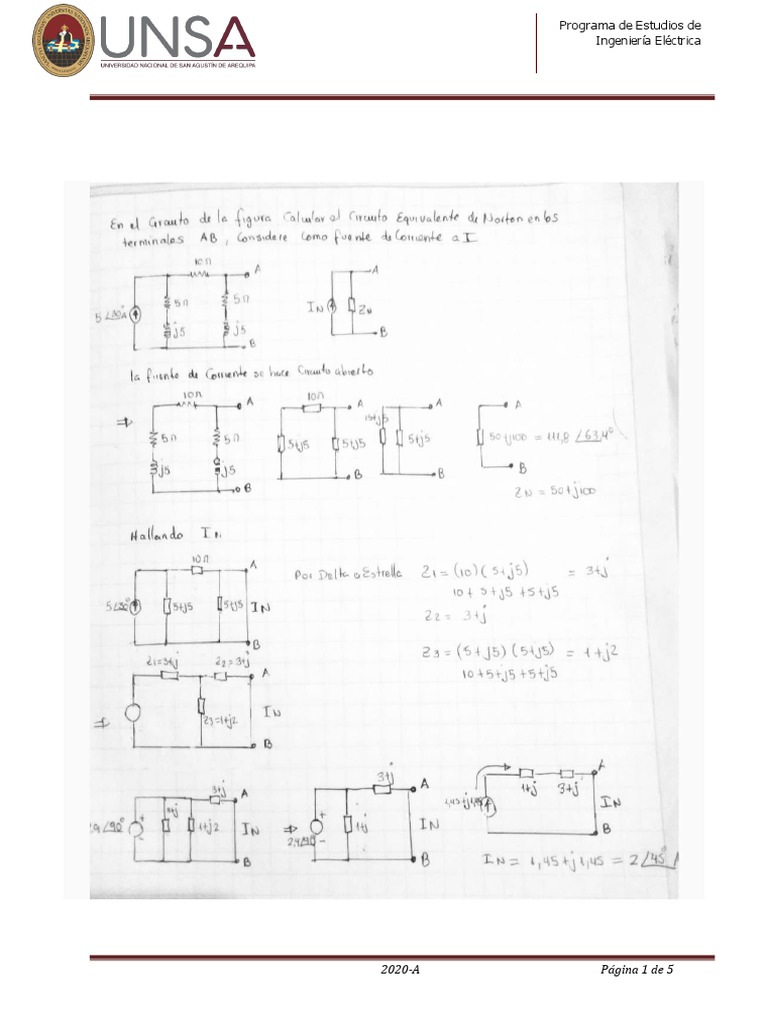 UNSA
UNIVERSIDAD NACIONAL DE SAN AGUSTÍN DE AREQUIPA
Programa de Estudios de
Ingeniería Eléctrica
En el Circuito de la figura Calcular el Circuito Equivalente de Norton en los
terminales AB, Considere como fuente de Corriente a I
10Ω A
5Ω 5Ω
j5 j5
B
IN ZN A
B
la fuente de Corriente se hace Circuito abierto
⇒ 10Ω A
5Ω 5Ω
j5 j5
B
10Ω A
5+j5 5+j5
B
15+j5 5+j5 A
B
A
50+j100 = 111,8 ∠63,4°
B
ZN = 50+j100
Hallando IN
10Ω A
5+j5 5+j5 IN
B
Por Delta a Estrella Z1 = (10)(5+j5) = 3+j
10+5+j5+5+j5
Z2 = 3+j
Z3 = (5+j5)(5+j5) = 1+j2
10+5+j5+5+j5
Z1=3+j Z2=3+j A
⇒ Z3=1+j2 IN
B
3+j A
1+j2 IN
B
⇒ 3+j A
1+j IN
B
1+j 3+j A
IN
B
IN = 1,45+j1,45 = 2∠45°
2020-A
Página 1 de 5